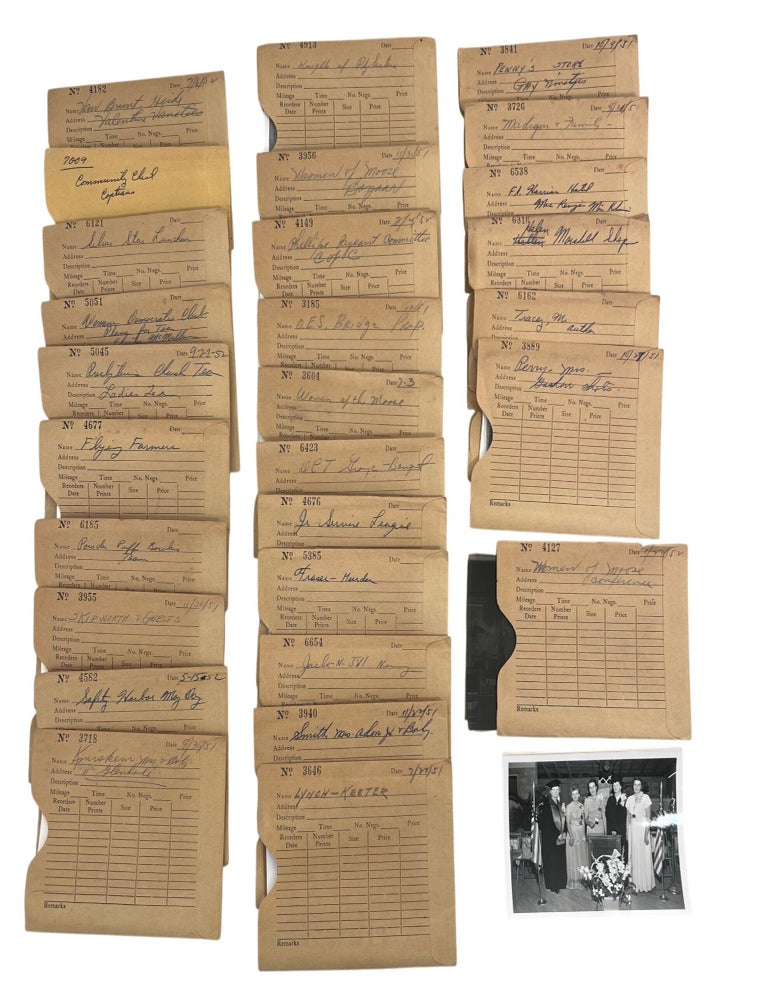 Nº 4182 Date 2/6/52
Name Van Brunt, Heidi
Address Valentine Vanities
Description
Mileage Time No. Negs. Price
7009
Community Chest
Captains
Nº 6121 Date
Name Silver Star Luncheon
Address
Description
Mileage Time No. Negs. Price
Reorders Number Size Price
Nº 5051 Date
Name Women Democratic Club
Address Plans for Tea
Description
Mileage Time No. Negs. Price
Nº 5045 Date 9-27-52
Name Presbyterian Church Tea
Address
Description Ladies Tea
Mileage Time No. Negs. Price
Reorders Number
Nº 4677 Date
Name Flying Farmers
Address
Description
Mileage Time No. Negs. Price
Reorders Date Number Prints Size Price
Nº 6185 Date
Name Powder Puff Bowlers
Address Team
Description
Mileage Time No. Negs. Price
Reorders Number Size Price
Nº 3955 11/20/51
Name Skepworth & Guests
Address
Description
Mileage Time No. Negs. Price
Reorders Number Size Price
Nº 4582 Date 5-15-52
Name Safty Harbor May Day
Address
Description
Nº 3718 Date 9/25/51
Name Kniskern Mrs & Baby
Address Glendale
Description
Mileage Time No. Negs. Price
Reorders Date Number Prints Size Price
Remarks
Nº 4913 Date
Name Knights of Pythias
Address
Description
Mileage Time No. Negs. Price
Reorders Date Number Prints Size Price
Nº 3956 11/21/51
Name Women of Moose
Address Bazaar
Description
Mileage Time No. Negs. Price
Nº 4149 Date 2/4/52
Name Phillippe Pageant Committee
Address C of C
Description
Mileage Time No. Negs. Price
Nº 3185
Name O.E.S. Bridge Prep.
Address
Description
Mileage Time No. Negs. Price
Nº 3604 Date 7-3
Name Women of the Moose
Address
Description
Mileage Time No. Negs. Price
Nº 6423 Date
Name DCT Group
Address
Description
Nº 4676 Date
Name Jr Service League
Address
Description
Nº 5385 Date
Name Fraser-Murder
Address
Description
Mileage Time No. Negs. Price
Reorders Number Size Price
Nº 6654 Date
Name
Address
Description
Mileage Time No. Negs. Price
Nº 3940 Date 11/27/51
Name Smith Mrs & Baby.
Address
Description
Nº 3646 Date
Name Lynch-Keeter
Address
Description
Mileage Time No. Negs. Price
Reorders Date Number Prints Size Price
Remarks
Nº 3841 Date 10/9/51
Name Penny's Store
Address Gay Nineties
Description
Mileage Time No. Negs. Price
Nº 3726
Name Madigan & Family
Address
Description
Mileage Time No. Negs. Price
Nº 6538 Date
Name Ft. Harrison Hotel
Address
Description
Nº 6316
Helen
Name Marshall Shop
Address
Description
Mileage Time No. Negs. Price
Nº 6162 Date
Name Tracey, M.
Address author
Description
Nº 3889 Date
Name Perry, Mrs.
Address Garden shots.
Description
Mileage Time No. Negs. Price
Reorders Date Number Prints Size Price
Remarks
Nº 4127
Name Women of Moose
Address Conference
Description
Mileage Time No. Negs. Price
Reorders Date Number Prints Size Price
Remarks